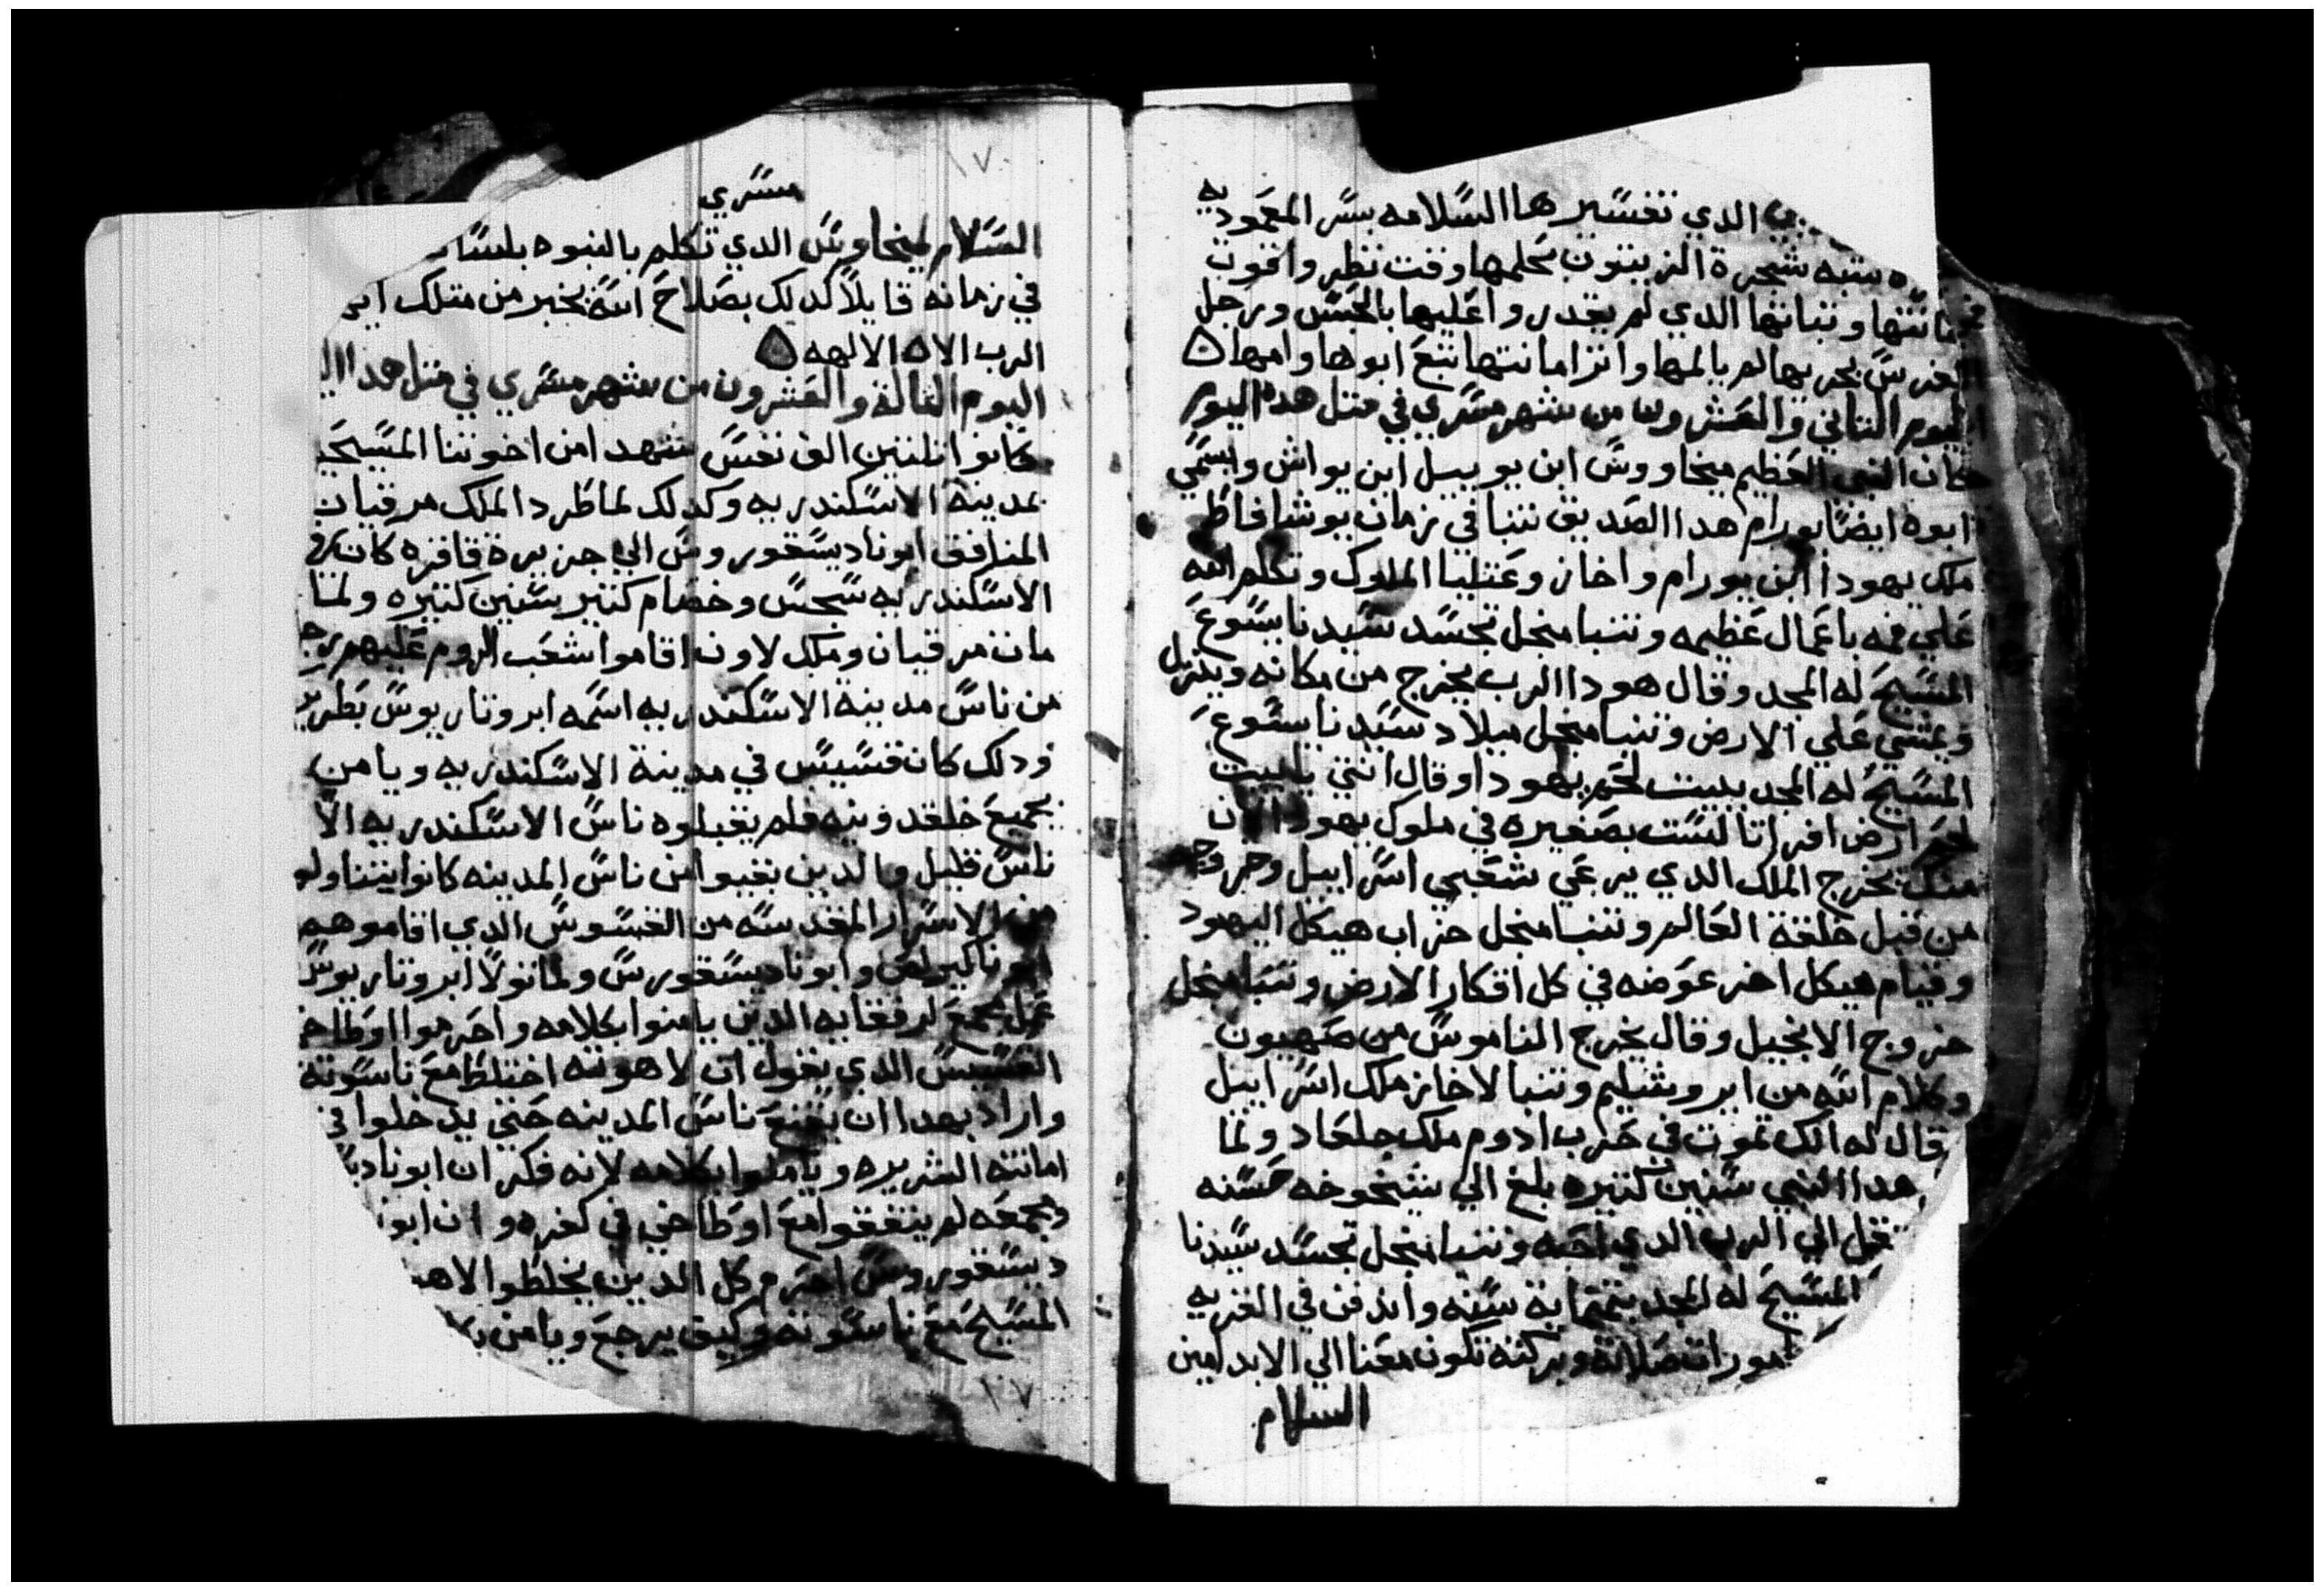 الدي تفسيرها السلامه بسر المعموديه
شبه شجرة الزيتون تحلمها وقت نظروا قوت
امانتها وتباتها الدي لم يقدروا عليها بالحبس ورجل
الفرس يجريها لم بالمها وانزامانتها تتبع ابوها وامها ۵
اليوم التاني والعشرون من شهر مسري في متل هده اليوم
كان النبي العظيم ميخاووس ابن يوييل ابن يواش واسمي
ابوه ايضا يورام هدا الصديق تنبا في زمان يوشافاط
ملك يهودا ابن يورام واخاز وعتليا الملوك وتكلم الله
علي فمه باعمال عظيمه وتنبا منجل تجسد سيدنا يسوع
المسيح له المجد وقال هودا الرب يخرج من مكانه وينزل
ويمشي علي الارض وتنبا منجل ميلاد سيدنا يسوع
المسيح له المجد ببيت لحم يهودا وقال انتي يا بيت
لحم ارض افراتا لست بصغيره في ملوك يهودا لان
منك يخرج الملك الدي يرعي شعبي اسراييل وخروجه
من قبل خلقة العالم وتنبا منجل خراب هيكل اليهود
وقيام هيكل اخر عوضه في كل اقكار الارض وتنبا منجل
خروج الانجيل وقال يخرج الناموس من صهيون
وكلام الله من ايروشليم وتنبا لاخاز ملك اسراييل
قال له انك تموت في حرب ادوم ملك جلعاد ولما
هدا النبي سنين كتيره بلغ الي شيخوخه حسنه
تقل الي الرب الدي احبه وتنبا منجل تجسد سيدنا
المسيح له المجد بتمماية سنه واندفن في القريه
مورات صلاته وبركته تكون معنا الي الابد امين
السلام
١٧
مسري
السلام لميخاووس الدي تكلم بالنبوه بلسا
في زمانه قايلا كدلك بصلاح الله يخبر من متلك اير
الرب الاه الالهه ۵
اليوم التالة والعشرون من شهر مسري في متل هدا ال
كانوا تلتين الف نفس شهدا من اخوتنا المسيحي
بمدينة الاسكندريه وكدلك لما طرد الملك مرقيان
المنافق ابونا ديسقوروس الي جزيرة قاقره كان في
الاسكندريه سجس وخصام كتير سنين كتيره ولما
مات مرقيان وملك لاون اقاموا شعب الروم عليهم رج
من ناس مدينة الاسكندريه اسمه ابروتاريوس بطري
ودلك كان قسيس في مدينة الاسكندريه ويامن
بجميع خلقدونيه فلم يقبلوه ناس الاسكندريه الا
ناس قليل والدين بقيوا من ناس المدينه كانوا يتناولو
من الاسرار المقدسه من القسوس الدي اقاموهم
ابونا كيرلص وابونا ديسقورس ولما تولا ابروتاريوس
عمل مجمع لرفقايه الدين يامنوا بكلامه واحرموا اوطاخ
القسيس الدي يقول ان لاهوته اختلط مع ناسوته
واراد بهدا ان يقنع ناس المدينه حتي يدخلوا في
امانته الشريره ويامنوا بكلامه لانه فكر ان ابونا ديـ
وجمعه لم يتفقوا مع اوطاخي في كفره وان ابونا
ديسقوروس احرم كل الدين يخلطوا لاهـ
المسيح مع ناسوته وكيف يرجع ويامن بـ
١٧